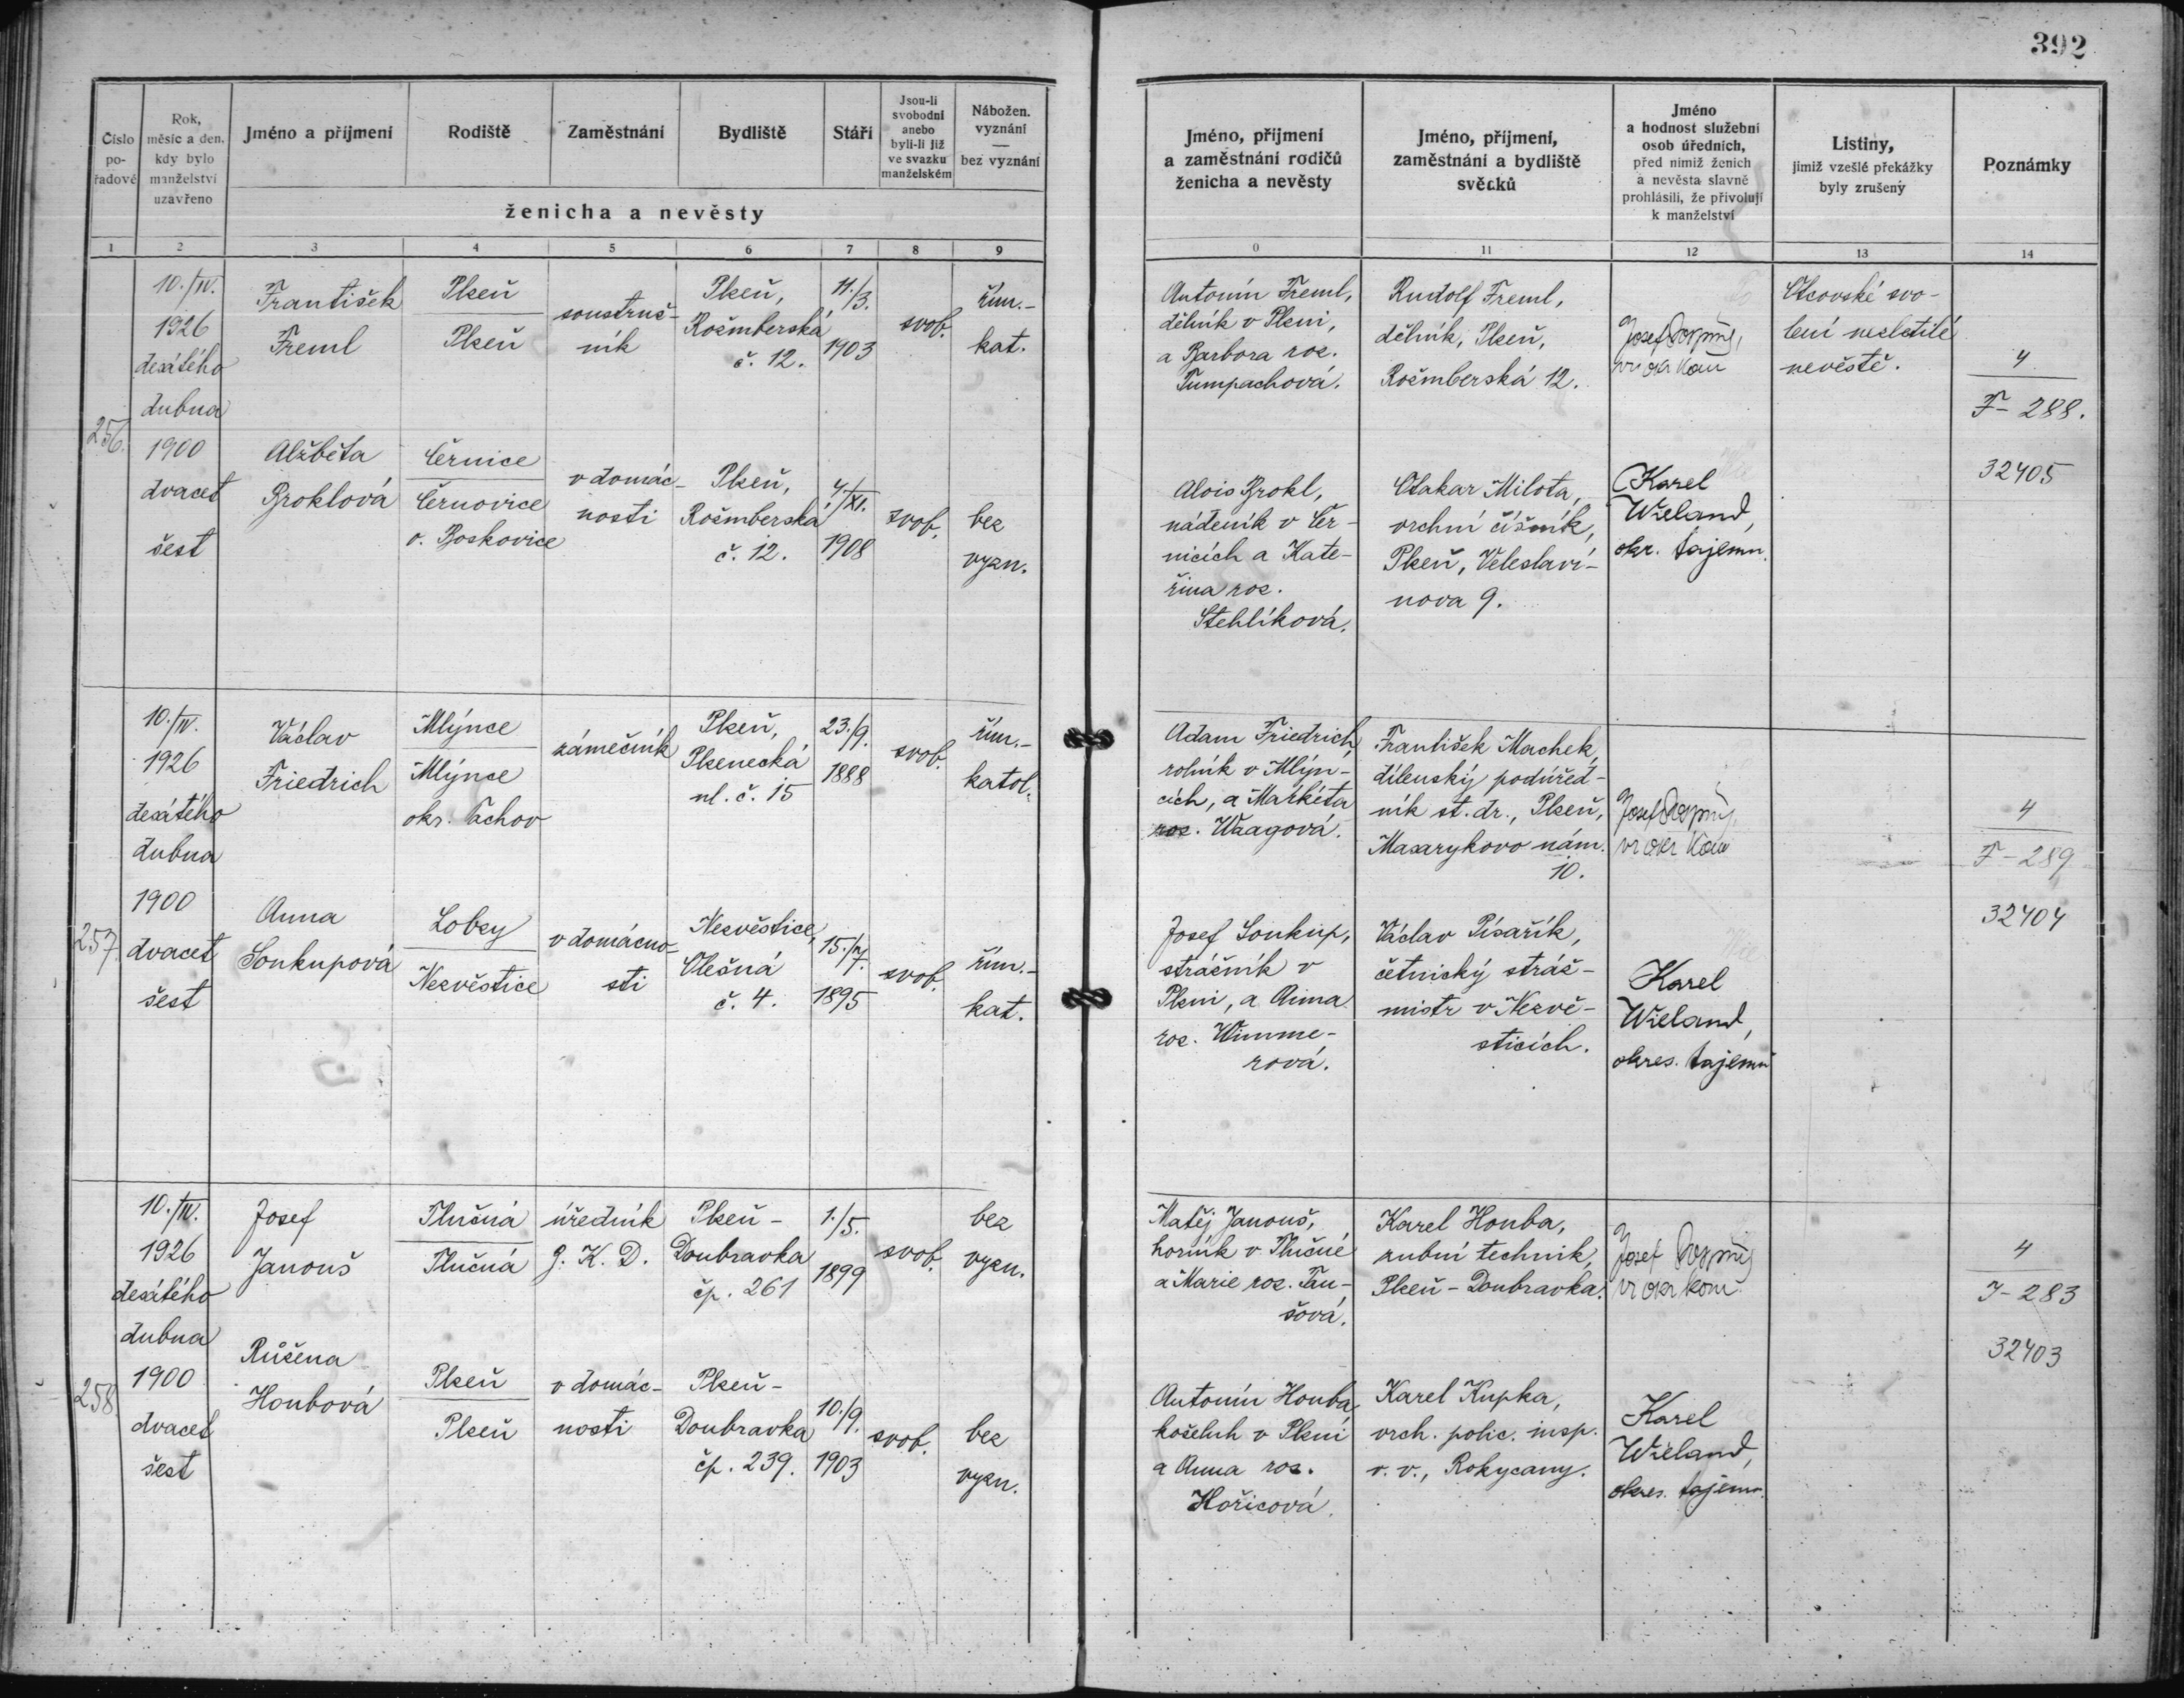 392
Číslo
po-
řadové
Rok,
měsíc a den,
kdy bylo
manželství
uzavřeno
Jméno a příjmení
Rodiště
Zaměstnání
Bydliště
Stáří
Jsou-li
svobodni
anebo
byli-li již
ve svazku
manželském
Nábožen.
vyznání
—
bez vyznání
ženicha a nevěsty
Jméno, příjmení
a zaměstnání rodičů
ženicha a nevěsty
Jméno, příjmení,
zaměstnání a bydliště
svědků
Jméno
a hodnost služební
osob úředních,
před nimiž ženich
a nevěsta slavně
prohlásili, že přivolují
k manželství
Listiny,
jimiž vzešlé překážky
byly zrušeny
Poznámky
1 2 3 4 5 6 7 8 9
0 11 12 13 14
256.
10./IV.
1926
desátého
dubna
1900
dvacet
šest
František
Freml
Plzeň
Plzeň
soustruž-
ník
Plzeň,
Rožmberská
č. 12.
11./3.
1903
svob.
řím.-
kat.
Antonín Freml,
dělník v Plzni,
a Barbora roz.
Tumpachová.
Rudolf Freml,
dělník, Plzeň,
Rožmberská 12.
Josef
Otcovské svo-
lení nezletilé
nevěstě.
4
F-288.
32405
Alžběta
Broklová
Černice
Černovice
o. Boskovice
v domác-
nosti
Plzeň,
Rožmberská
č. 12.
4./XI.
1908
svob.
bez
vyzn.
Alois Brokl,
nádeník v Čer-
nicích a Kate-
řina roz.
Stehlíková.
Otakar Milota,
vrchní číšník,
Plzeň, Veleslaví-
nova 9.
Karel
Wieland,
okr. tajemn.
257.
10./IV.
1926
desátého
dubna
1900
dvacet
šest
Václav
Friedrich
Mlýnce
Mlýnce
okr. Tachov
zámečník
Plzeň,
Plzenecká
ul. č. 15
23./9.
1888
svob.
řím.-
katol.
Adam Friedrich,
rolník v Mlýn-
cích, a Markéta
roz. Waagová.
František Machek,
dílenský podúřed-
ník st. dr., Plzeň,
Masarykovo nám.
10.
Josef
4
F-289
32404
Anna
Soukupová
Lobzy
Nezvěstice
v domácno-
sti
Nezvěstice,
Olešná
č. 4.
15./7.
1895
svob.
řím.-
kat.
Josef Soukup,
strážník v
Plzni, a Anna
roz. Wimme-
rová.
Václav Písařík,
četnický stráž-
mistr v Nezvě-
sticích.
Karel
Wieland,
okres. tajemn
258.
10./IV.
1926
desátého
dubna
1900
dvacet
šest
Josef
Janouš
Tlučná
Tlučná
úředník
J. K. D.
Plzeň-
Doubravka
čp. 261
1./5.
1899
svob.
bez
vyzn.
Matěj Janouš,
horník v Tlučné
a Marie roz. Tau-
šová.
Karel Houba,
zubní technik,
Plzeň-Doubravka.
Josef
4
J-283
32403
Růžena
Houbová
Plzeň
Plzeň
v domác-
nosti
Plzeň-
Doubravka
čp. 239.
10./9.
1903
svob.
bez
vyzn.
Antonín Houba,
koželuh v Plzni
a Anna roz.
Hořicová.
Karel Kupka,
vrch. polic. insp.
v. v., Rokycany.
Karel
Wieland,
okres. tajemn.